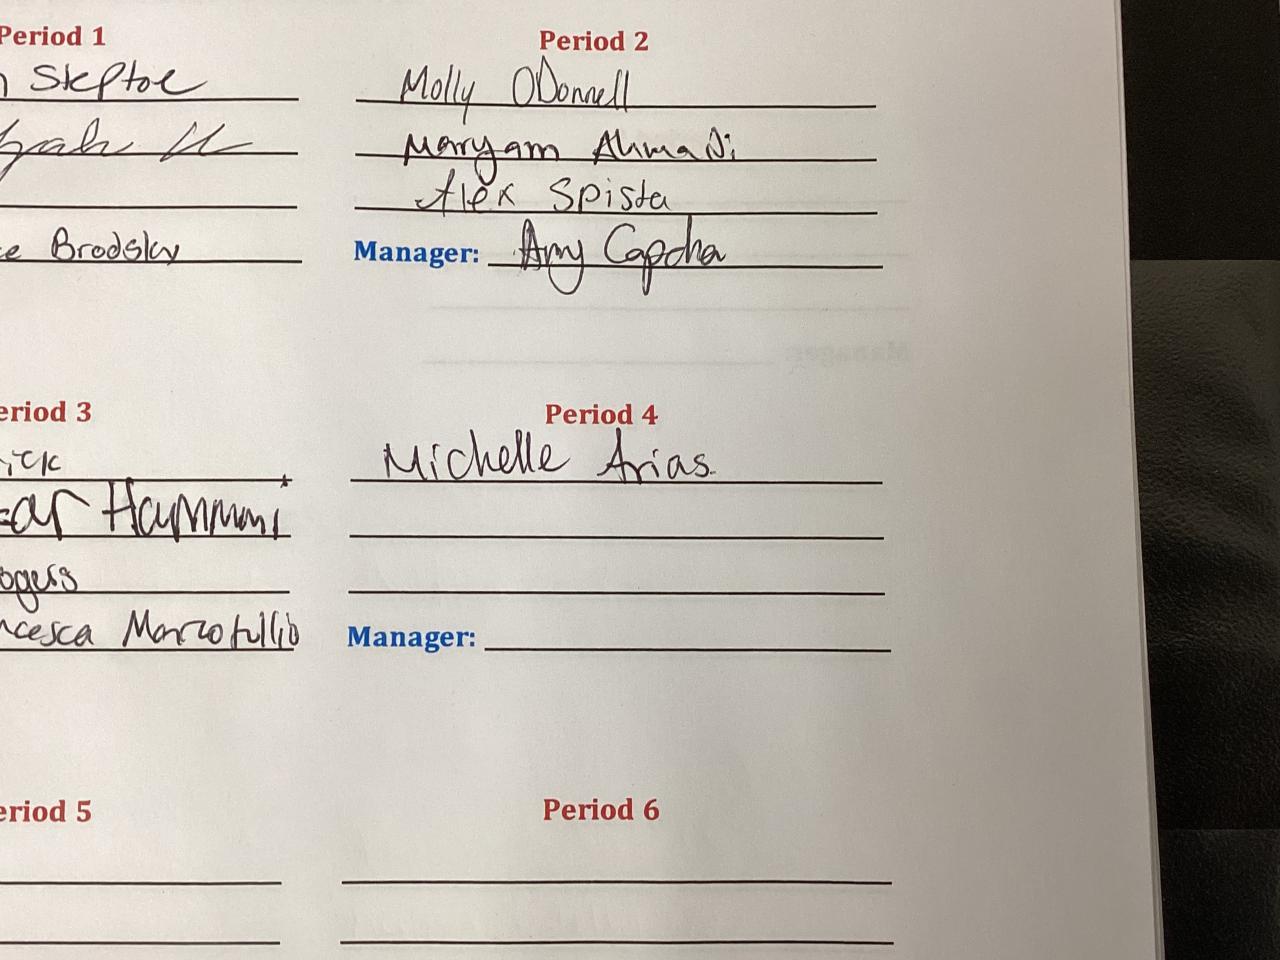 Period 1
Steptoe
Brodsky
Period 2
Molly ODonnell
Maryam Ahmadi
Alex Spista
Manager: Amy Capcha
Period 3
Hammmi
Marcotullio
Period 4
Michelle Arias.
Manager:
Period 5
Period 6